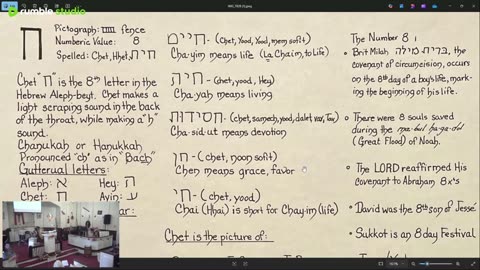 rumble studio
ח Pictograph: fence
Numberic Value: 8
Spelled: Chet, Hhet, חית
Chet "ח" is the 8th letter in the
Hebrew Aleph-beyt. Chet makes a
light scraping sound in the back
of the throat, while making a "h"
sound.
Chanukah or Hanukkah
Pronounced "ch" as in "Bach"
Gutterual letters:
Aleph: א Hey: ה
Chet: ח Ayin: ע
חיים - (Chet, Yood, Yood, mem sofit)
Cha-yim means life (La Chaim, to Life)
חיה - (chet, yood, Hey)
Cha-yah means living
חסידות - (chet, samech, yood, dalet, var, Tav)
Cha-sid-ut means devotion
חן - (chet, noon sofit)
Chen means grace, favor
חי - (chet, yood)
Chai (Hhai) is short for Chay-im (life)
Chet is the picture of:
The Number 8:
• Brit Milah, ברית מילה, the
covenant of circumcision, occurs
on the 8th day of a boy's life, mark-
ing the beginning of his life.
• There were 8 souls saved
during the ma-bul ha-ga-dol
(Great Flood) of Noah.
• The LORD reaffirmed His
covenant to Abraham 8x's
• David was the 8th son of Jesse
• Sukkot is an 8 day Festival